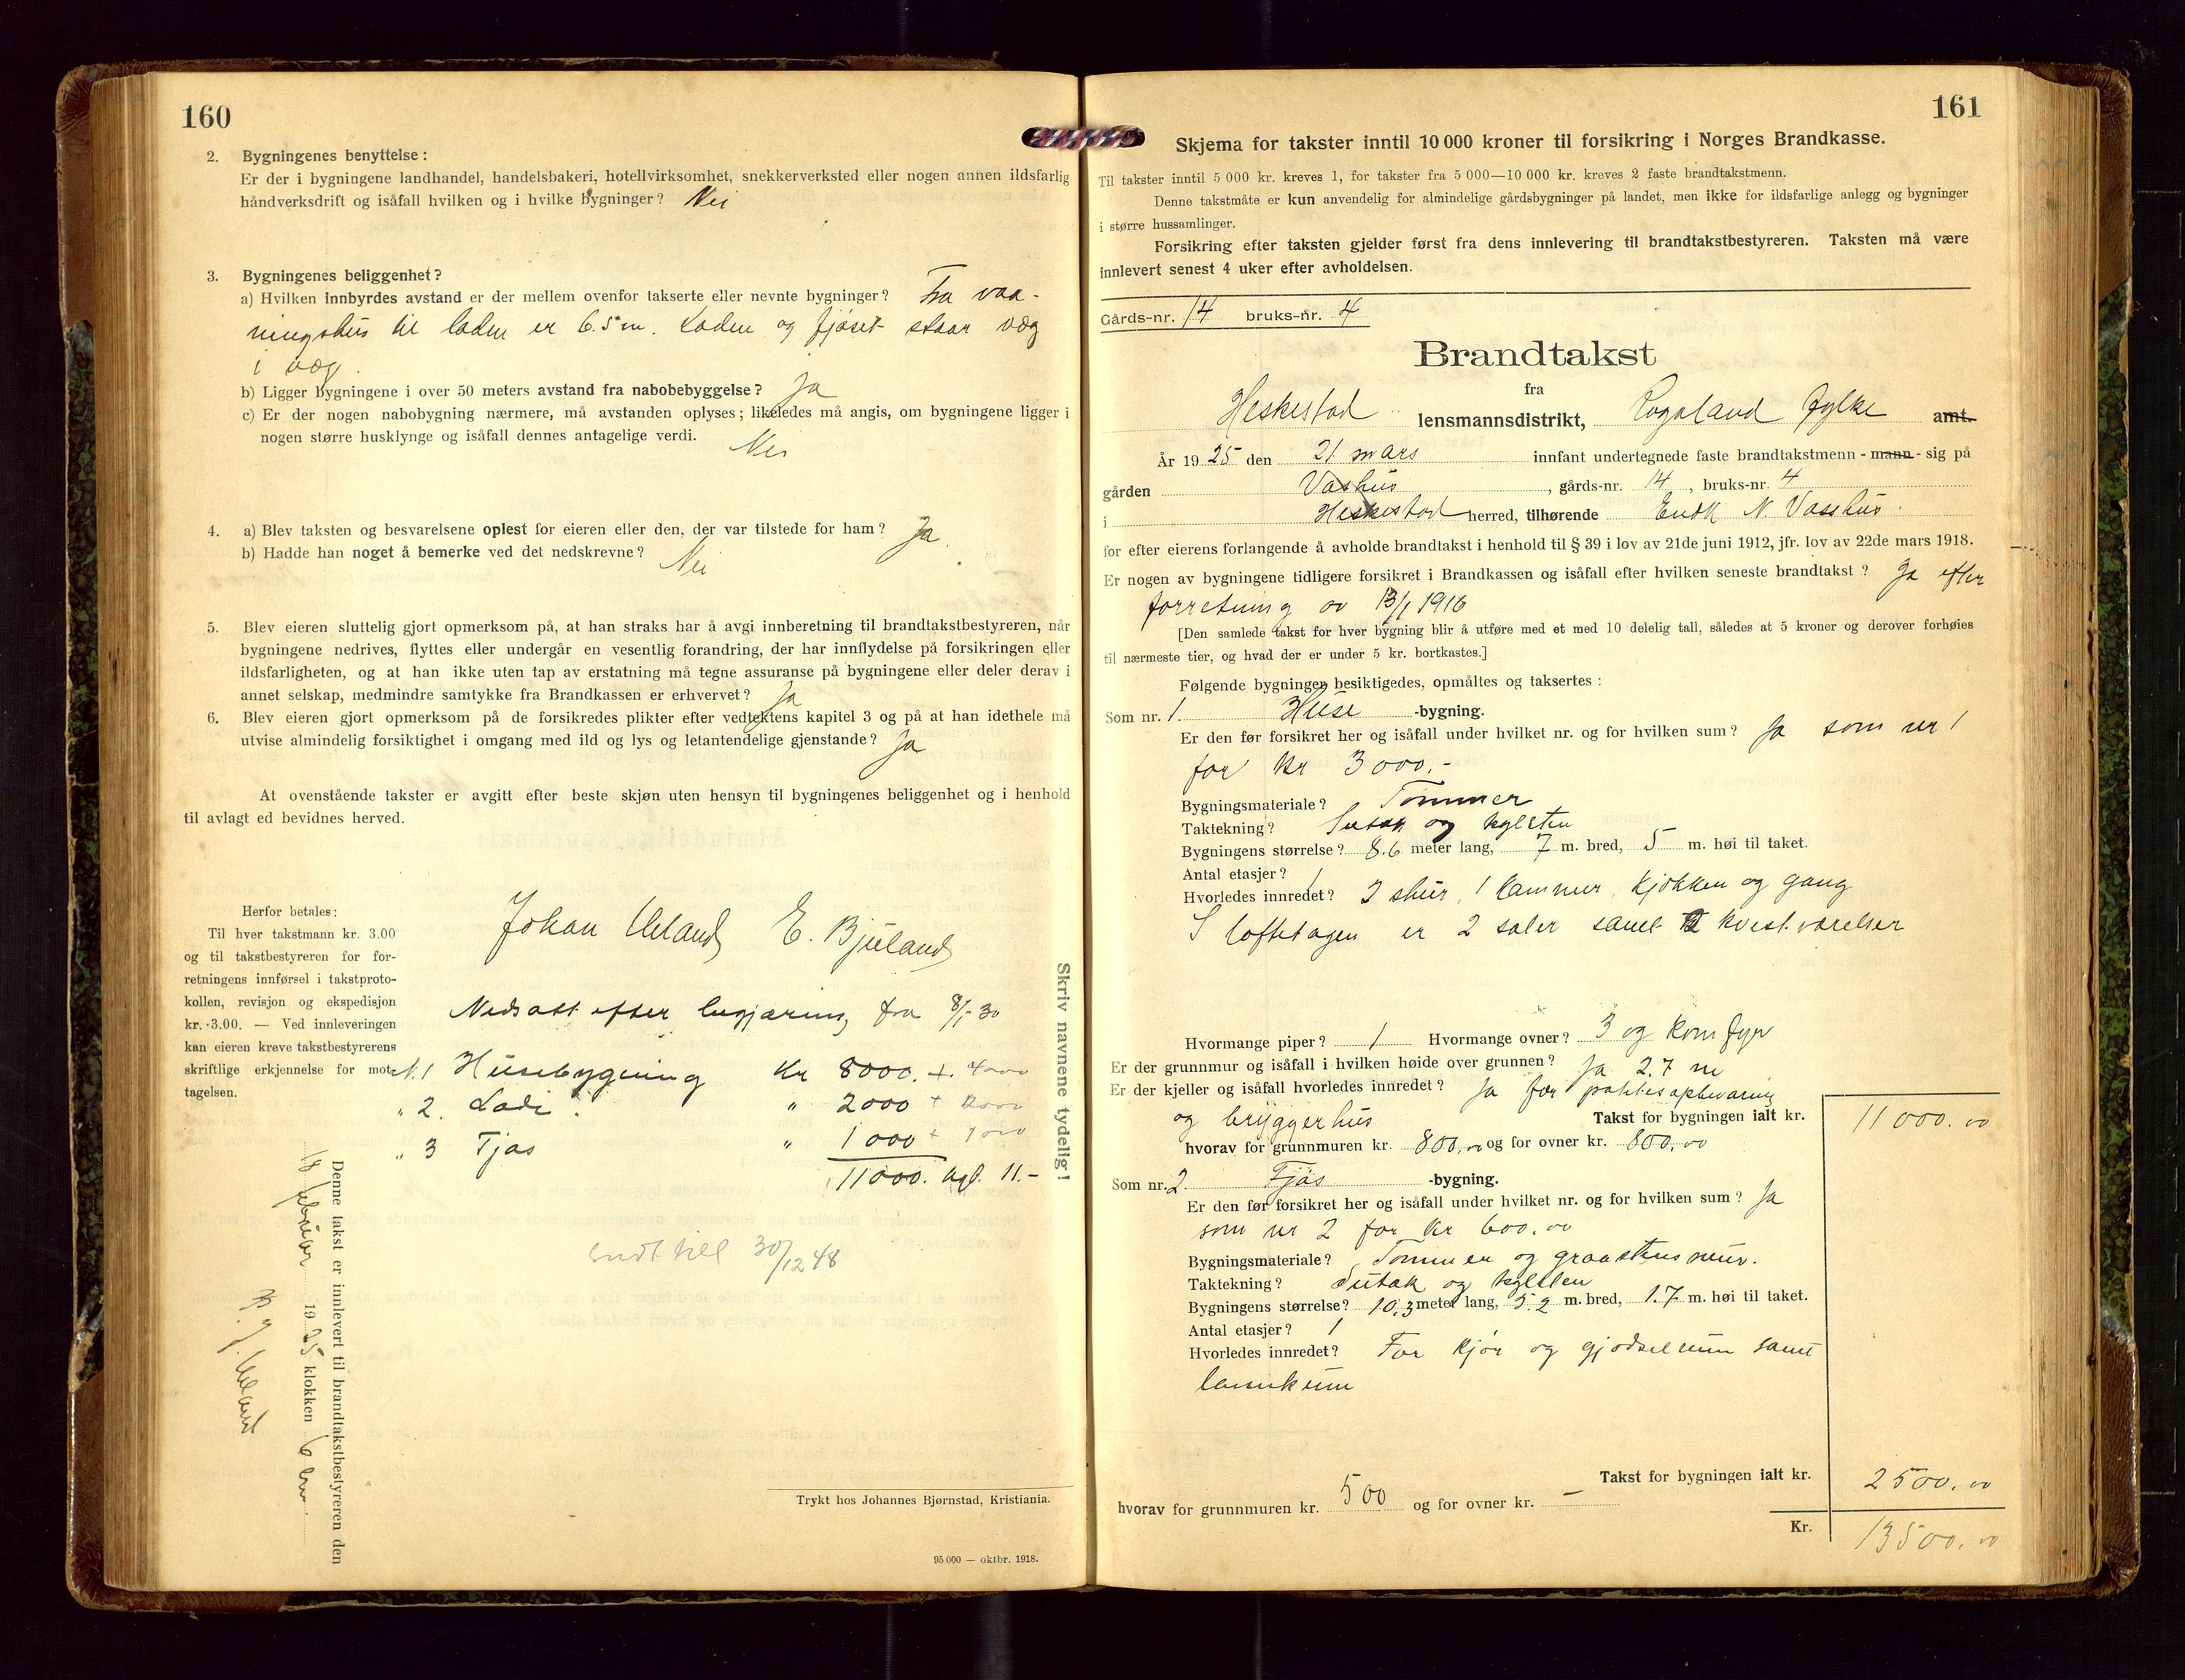 160
2. Bygningenes benyttelse:
Er der i bygningene landhandel, handelsbakeri, hotellvirksomhet, snekkerverksted eller nogen annen ildsfarlig
håndverksdrift og isåfall hvilken og i hvilke bygninger? Nei
3. Bygningenes beliggenhet?
a) Hvilken innbyrdes avstand er der mellem ovenfor takserte eller nevnte bygninger? Fra vaa-
ningshus til laden er 6.5 m. Laden og fjøset staar væg
i væg.
b) Ligger bygningene i over 50 meters avstand fra nabobebyggelse? Ja
c) Er der nogen nabobygning nærmere, må avstanden oplyses; likeledes må angis, om bygningene ligger i
nogen større husklynge og isåfall dennes antagelige verdi. Nei
4. a) Blev taksten og besvarelsene oplest for eieren eller den, der var tilstede for ham? Ja
b) Hadde han noget å bemerke ved det nedskrevne? Nei
5. Blev eieren sluttelig gjort opmerksom på, at han straks har å avgi innberetning til brandtakstbestyreren, når
bygningene nedrives, flyttes eller undergår en vesentlig forandring, der har innflydelse på forsikringen eller
ildsfarligheten, og at han ikke uten tap av erstatning må tegne assuranse på bygningene eller deler derav i
annet selskap, medmindre samtykke fra Brandkassen er erhvervet? Ja
6. Blev eieren gjort opmerksom på de forsikredes plikter efter vedtektens kapitel 3 og på at han idethele må
utvise almindelig forsiktighet i omgang med ild og lys og letantendelige gjenstande? Ja
At ovenstående takster er avgitt efter beste skjøn uten hensyn til bygningenes beliggenhet og i henhold
til avlagt ed bevidnes herved.
Johan Ueland E. Bjuland
Herfor betales:
Til hver takstmann kr. 3.00
og til takstbestyreren for for-
retningens innførsel i takstproto-
kollen, revisjon og ekspedisjon
kr. 3.00. — Ved innleveringen
kan eieren kreve takstbestyrerens
skriftlige erkjennelse for mot-
tagelsen.
Nedsatt efter begjæring fra 8/1-30
N. 1 Husebygning Kr 8000. + 4000
" 2. Lade. " 2000 +
" 3 Fjøs " 1000 + 1000
11000. 11.-
Skriv navnene tydelig!
till 30/12 48
Denne takst er innlevert til brandtakstbestyreren den
18 februar 1925 klokken 6
Ueland
Trykt hos Johannes Bjørnstad, Kristiania.
95 000 — oktbr. 1918.
161
Skjema for takster inntil 10 000 kroner til forsikring i Norges Brandkasse.
Til takster inntil 5 000 kr. kreves 1, for takster fra 5 000—10 000 kr. kreves 2 faste brandtakstmenn.
Denne takstmåte er kun anvendelig for almindelige gårdsbygninger på landet, men ikke for ildsfarlige anlegg og bygninger
i større hussamlinger.
Forsikring efter taksten gjelder først fra dens innlevering til brandtakstbestyreren. Taksten må være
innlevert senest 4 uker efter avholdelsen.
Gårds-nr. 14 bruks-nr. 4
Brandtakst
fra
Heskestad lensmannsdistrikt, Rogaland fylke amt.
År 1925 den 21 mars innfant undertegnede faste brandtakstmenn - mann - sig på
gården Vashus, gårds-nr. 14, bruks-nr. 4
i Heskestad herred, tilhørende Endk N. Vasshus.
for efter eierens forlangende å avholde brandtakst i henhold til § 39 i lov av 21de juni 1912, jfr. lov av 22de mars 1918.
Er nogen av bygningene tidligere forsikret i Brandkassen og isåfall efter hvilken seneste brandtakst? Ja efter
forretning av 13/1 1916
[Den samlede takst for hver bygning blir å utføre med et med 10 delelig tall, således at 5 kroner og derover forhøies
til nærmeste tier, og hvad der er under 5 kr. bortkastes.]
Følgende bygninger besiktigedes, opmåltes og taksertes:
Som nr. 1. Huse -bygning.
Er den før forsikret her og isåfall under hvilket nr. og for hvilken sum? Ja som nr 1
for Kr 3000.-
Bygningsmateriale? Tømmer
Taktekning? Sutak og hglsten
Bygningens størrelse? 8.6 meter lang, 7 m. bred, 5 m. høi til taket.
Antal etasjer? 1
Hvorledes innredet? 2 stuer, 1 kammer, kjøkken og gang
I loftetagen er 2 saler samt 2 kvistværelser
Hvormange piper? 1 Hvormange ovner? 3 og komfyr
Er der grunnmur og isåfall i hvilken høide over grunnen? Ja 2.7 m
Er der kjeller og isåfall hvorledes innredet? Ja for potetesopbevaring
og bryggerhus Takst for bygningen ialt kr. 11000.00
hvorav for grunnmuren kr. 800,00 og for ovner kr. 800,00
Som nr. 2. Fjøs -bygning.
Er den før forsikret her og isåfall under hvilket nr. og for hvilken sum? Ja
som nr 2 for Kr 600.00
Bygningsmateriale? Tømmer og graastensmur.
Taktekning? Sutak og hglsten
Bygningens størrelse? 10.3 meter lang, 5.2 m. bred, 1.7 m. høi til taket.
Antal etasjer? 1
Hvorledes innredet? For kjør og gjødselrum samt
Takst for bygningen ialt kr. 2500.00
hvorav for grunnmuren kr. 500 og for ovner kr. —
Kr. 13500.00